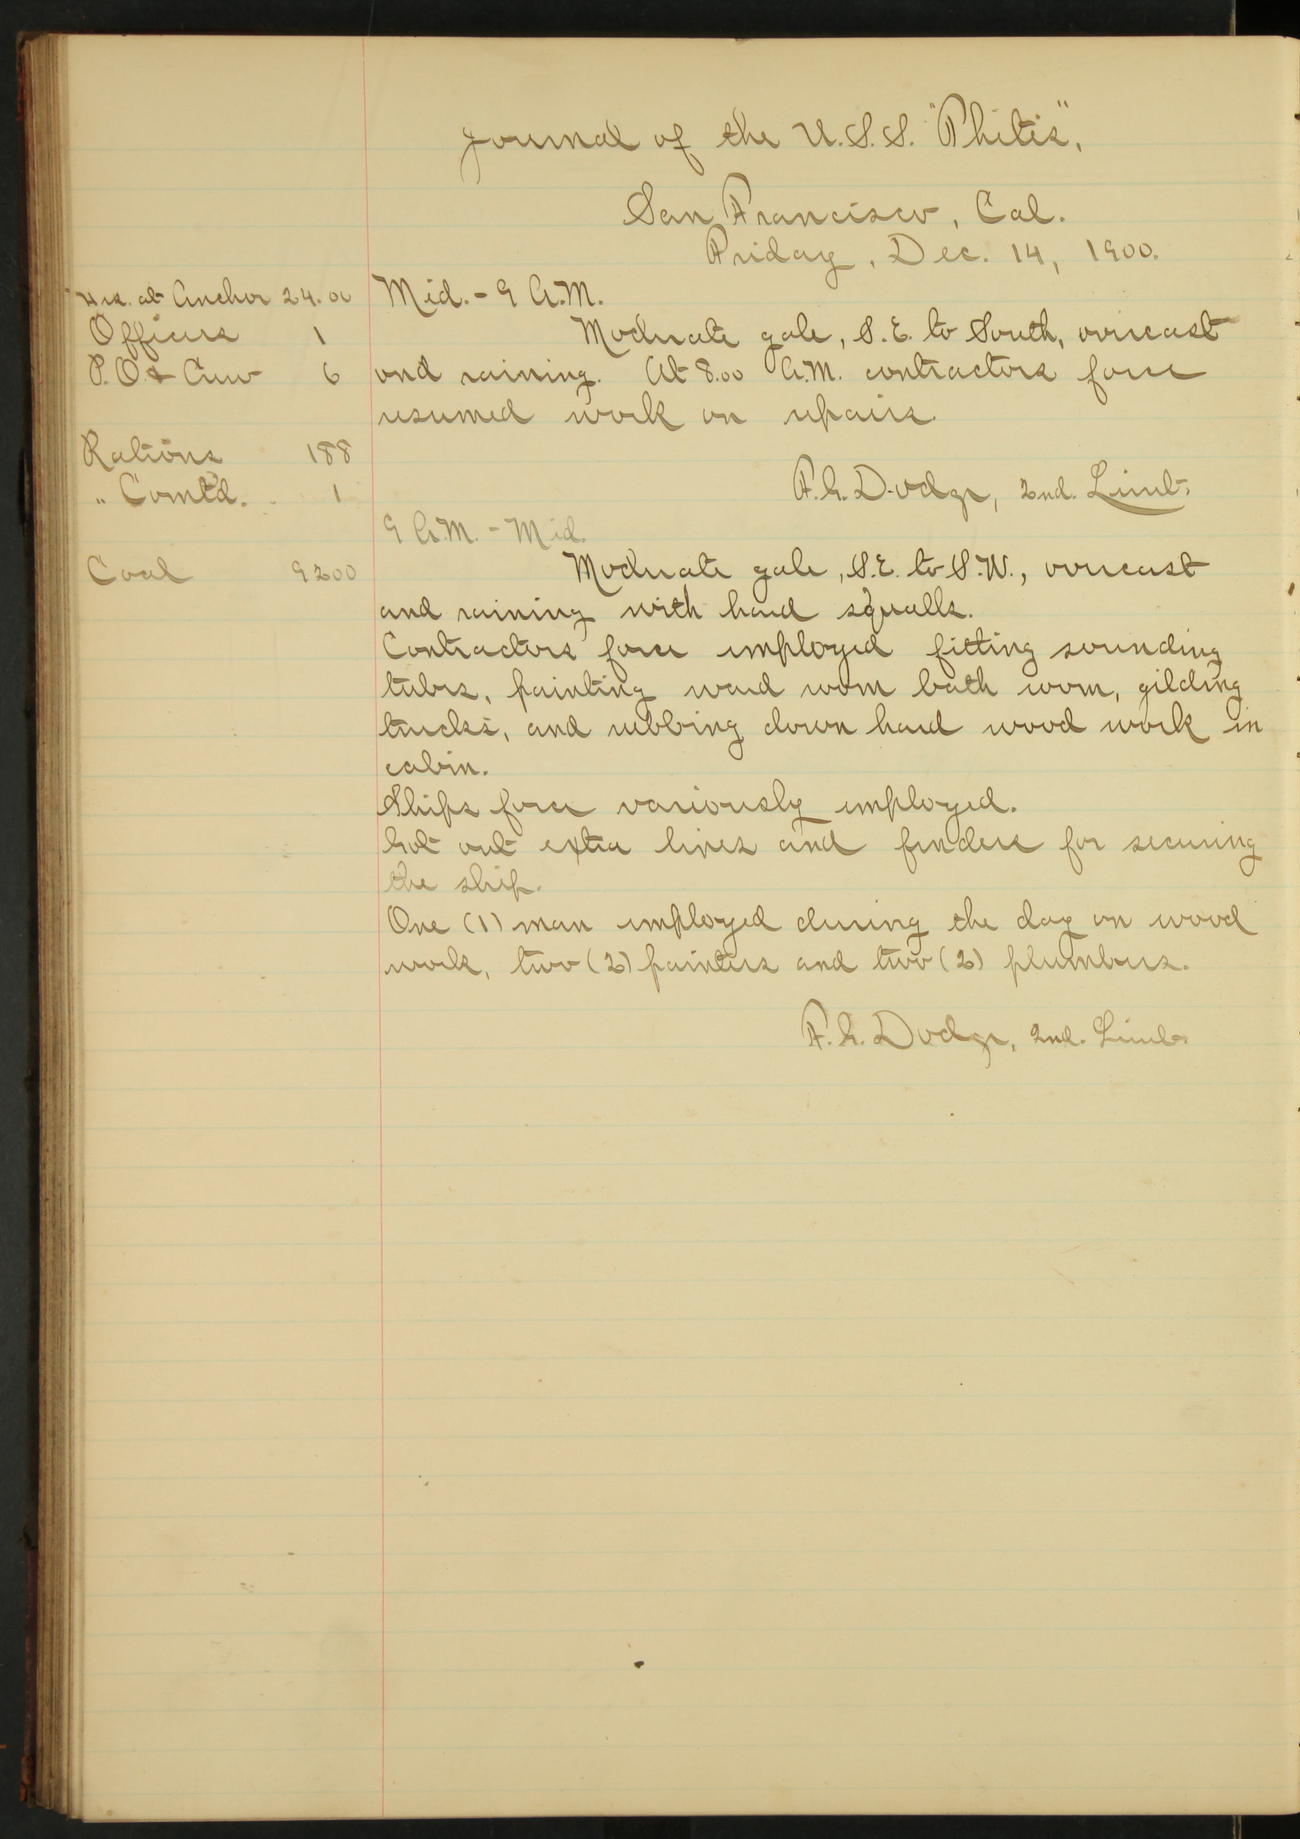 Journal of the U.S.S. "Thetis",
San Francisco, Cal.
Friday, Dec. 14, 1900.
Hrs. at Anchor 24.00
Officers 1
P.O. & Crew 6
Rations 188
" Comt'd. 1
Coal 9200
Mid. - 9 A.M.
Moderate gale, S.E. to South, overcast
and raining. At 8.00 A.M. contractors force
resumed work on repairs.
F.G. Dodge, 2nd. Lieut.
9 A.M. - Mid.
Moderate gale, S.E. to S.W., overcast
and raining with hard squalls.
Contractors force employed fitting sounding
tubes, painting ward room bath room, gilding
trucks, and rubbing down hard wood work in
cabin.
Ships force variously employed.
Got out extra lines and fenders for securing
the ship.
One (1) man employed during the day on wood
work, two (2) painters and two (2) plumbers.
F.G. Dodge, 2nd. Lieut.